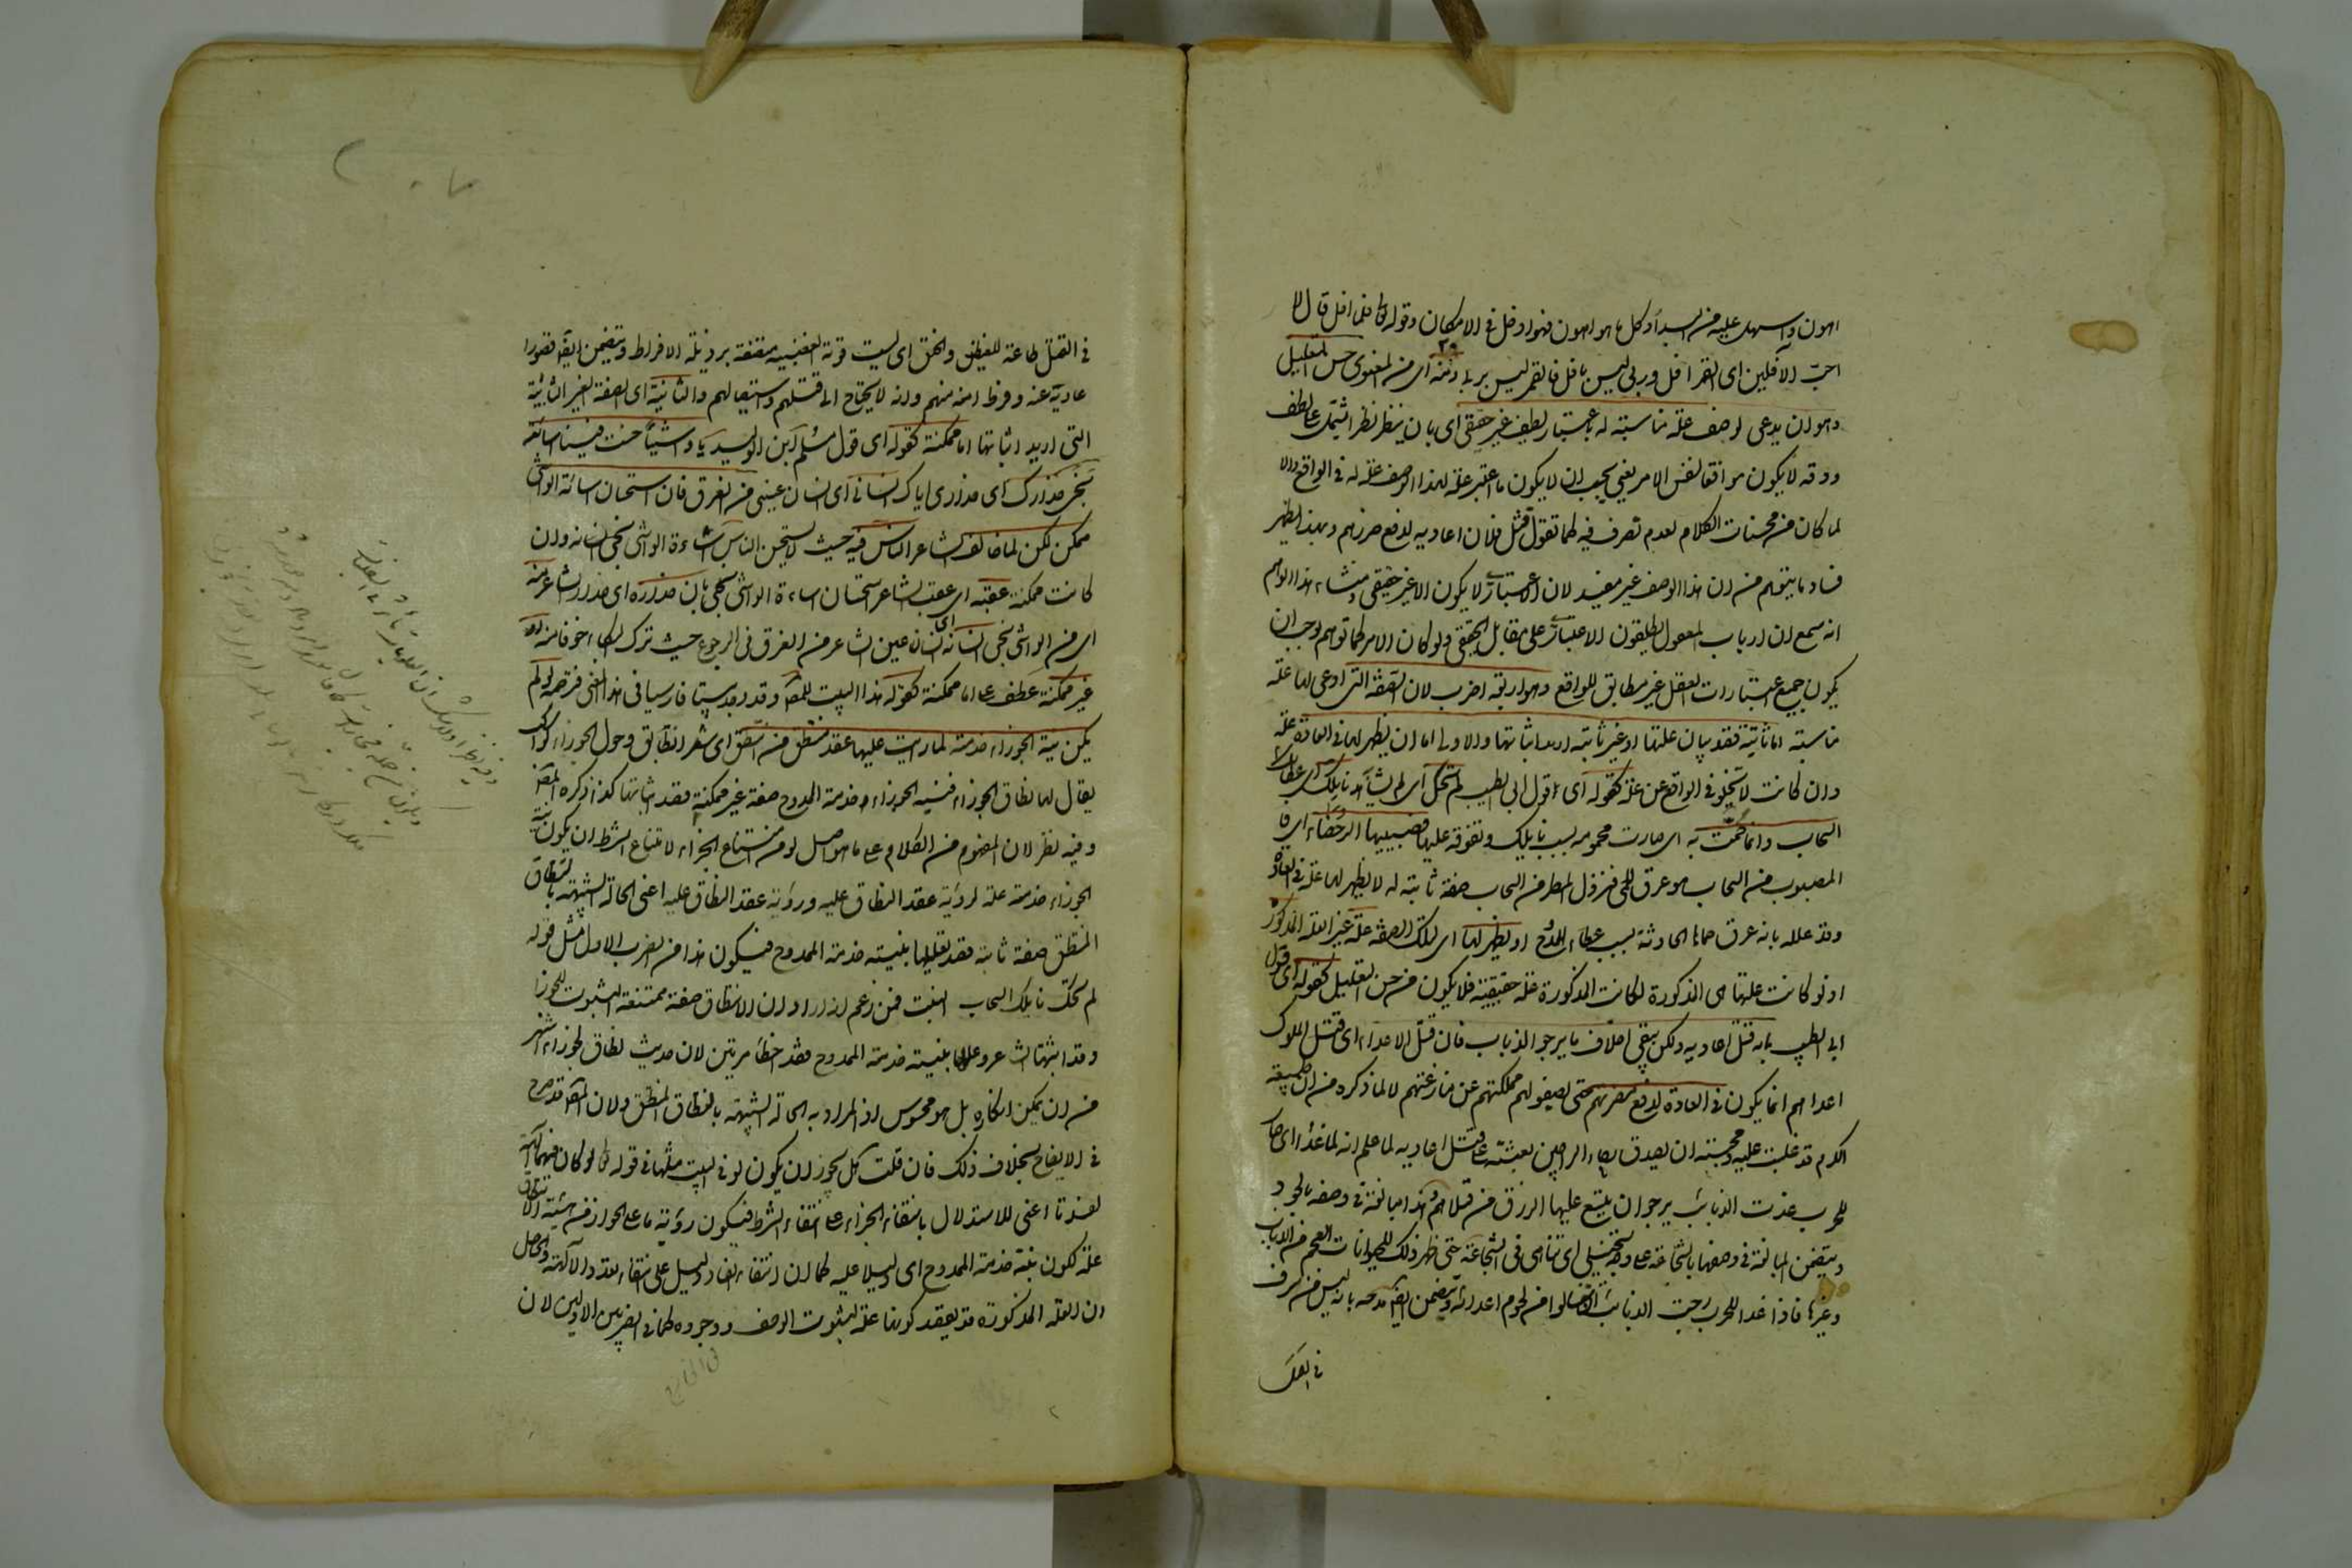 اهون واسهل عليه من البدأ وكل ما هو اهون فهو ادخل فى الامكان وقوله تعالى فلما افل قال لا
احب الآفلين اى القمر افل وربى ليس بافل فالقمر ليس بربى ومنه اى من المعنوى حسن التعليل
وهو ان يدعى لوصف علة مناسبة له باعتبار لطيف غير حقيقى اى بان ينظر نظرا يشتمل على لطف
ودقة ولا يكون موافقا لنفس الامر يعنى يجب ان لا يكون ما اعتبر علة لهذا الوصف علة له فى الواقع والا
لما كان من محسنات الكلام لعدم تصرف فيه كما تقول قتل فلان اعاديه لدفع ضررهم وبهذا يظهر
فساد ما يتوهم من ان هذا الوصف غير مفيد لان الاعتبار لا يكون الا غير حقيقى ومنشاء هذا الوهم
انه سمع ان ارباب المعقول يطلقون الاعتبارى على مقابل الحقيقى ولو كان الامر كما توهم لوجب ان
يكون جميع اعتبارات العقل غير مطابق للواقع وهو اربعة اضرب لان الصفة التى ادعى لها علة
مناسبة اما ثابتة قصد بيان علتها او غير ثابتة اريد اثباتها والاولى اما ان لا يظهر لها فى العادة علة
وان كانت لا تخلو فى الواقع عن علة كقوله اى قول ابى الطيب لم تحك اى لم يشابه نايلك اى عطاءك
السحاب وانما حمت به اى صارت محمومة بسبب نايلك وتفوقه عليها فصبيبها الرحضاء اى فا
المصبوب من السحاب هو عرق الحمى فنزول المطر من السحاب صفة ثابتة له لا يظهر لها علة فى العادة
وقد علله بانه عرق حماها الحادثة بسبب عطاء الممدوح او يظهر لها اى لتلك الصفة علة غير العلة المذكورة
اذ لو كانت علتها هى المذكورة لكانت المذكورة علة حقيقية فلا يكون من حسن التعليل كقوله اى قول
ابى الطيب ما به قتل اعاديه ولكن يتقى اخلاف ما يرجو الذياب فان قتل الاعداء اى قتل الملوك
اعداءهم انما يكون فى العادة لدفع مضرتهم حتى يصفو لهم مملكتهم عن منازعتهم لا لما ذكره من ان طبيعة
الكرم قد غلبت عليه ومحبته ان يصدق رجاء الراجين بعثته على قتل اعاديه لما علم انه لما غدا اى صار
للحرب غدت الذياب يرجو ان يتسع عليها الرزق من قتلاهم وهذا مبالغة فى وصفه بالجود
ويتضمن المبالغة فى وصفها بالشجاعة على وجه تخييلى اى تناهى فى الشجاعة حتى ظهر ذلك للحيوانات العجم من الذياب
وغيرها فاذا غدا للحرب رجت الذياب ان ينالوا من لحوم اعدائه ويتضمن ايضا مدحه بانه ليس من يسرف
فى القتل
فى القتل طاعة للغيظ والحنق اى ليست قوته الغضبية متصفة برذيلة الافراط ويتضمن ايضا قصورا
عاديه عنه وفرط امنه منهم وانه لا يحتاج الى قتلهم واستيصالهم والثانية اى الصفة الغير الثابتة
التى اريد اثباتها اما ممكنة كقوله اى قول مسلم ابن الوليد يا واشيا حسنت فينا اسائته
نجى حذارك اى حذارى اياك انسانى اى انسان عينى من الغرق فان استحسان اسائة الواشى
ممكن لكن لما خالف الشاعر الناس فيه حيث لا يستحسن الناس اساءة الواشى نجى انسانه وان
كانت ممكنة عقبه اى عقب الشاعر استحسان اساءة الواشى نجى بان حذاره اى حذار الشاعر منه
اى من الواشى نجى انسانه اى انسان عين الشاعر من الغرق فى الدموع حيث ترك البكاء خوفا منه او
غير ممكنة عطف على اما ممكنة كقوله هذا البيت للمصنف وقد وجد بيتا فارسيا فى هذا المعنى فترجمه لو لم
يكن نية الجوزاء خدمته لما رايت عليها عقد منتطق من انتطق اى شد النطاق وحول الجوزاء كواكب
يقال لها نطاق الجوزاء فنية الجوزاء خدمة الممدوح صفة غير ممكنة قصد اثباتها كذا ذكره المصنف
وفيه نظر لان المفهوم من الكلام على ما هو اصل لو من امتناع الجزاء لامتناع الشرط ان يكون نية
الجوزاء خدمته علة لرؤية عقد النطاق عليه ورؤية عقد النطاق عليه اعنى الحالة الشبيهة بانتطاق
المنتطق صفة ثابتة قصد تعليلها بنيته خدمة الممدوح فيكون هذا من الضرب الاول مثل قوله
لم تحك نايلك السحاب البيت فمن زعم انه اراد ان الانتطاق صفة ممتنعة الثبوت للجوزا
وقد اثبتها الشاعر وعللها بنية خدمة الممدوح فقد اخطأ مرتين لان حديث نطاق الجوزاء اشهر
من ان يمكن انكاره بل هو محسوس اذ المراد به الحالة الشبيهة بانتطاق المنتطق ولان المصنف قد صرح
فى الايضاح بخلاف ذلك فان قلت هل يجوز ان يكون لو فى البيت مثلها فى قوله تعالى لو كان فيهما آلهة
لفسدتا اعنى للاستدلال بانتفاء الجزاء على انتفاء الشرط فيكون رؤية ما على الجوزاء من هيئة الانتطاق
علة لكون نيته خدمة الممدوح اى دليلا عليه كما ان انتفاء الفساد دليل على انتفاء تعدد الآلهة والحاصل
ان العلة المذكورة قد يقصد كونها علة لثبوت الوصف ووجوده كما فى الضربين الاولين لان